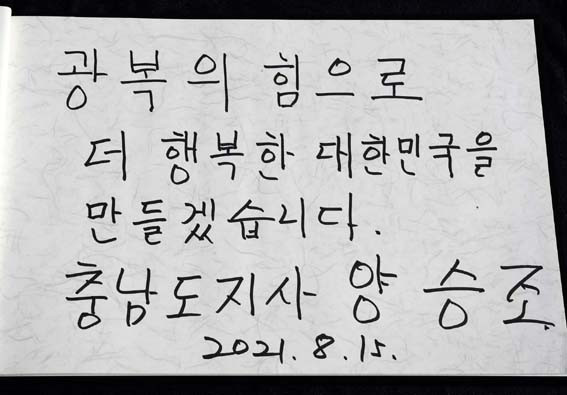 광복의 힘으로
더 행복한 대한민국을
만들겠습니다.
충남도지사 양승조
2021. 8. 15.